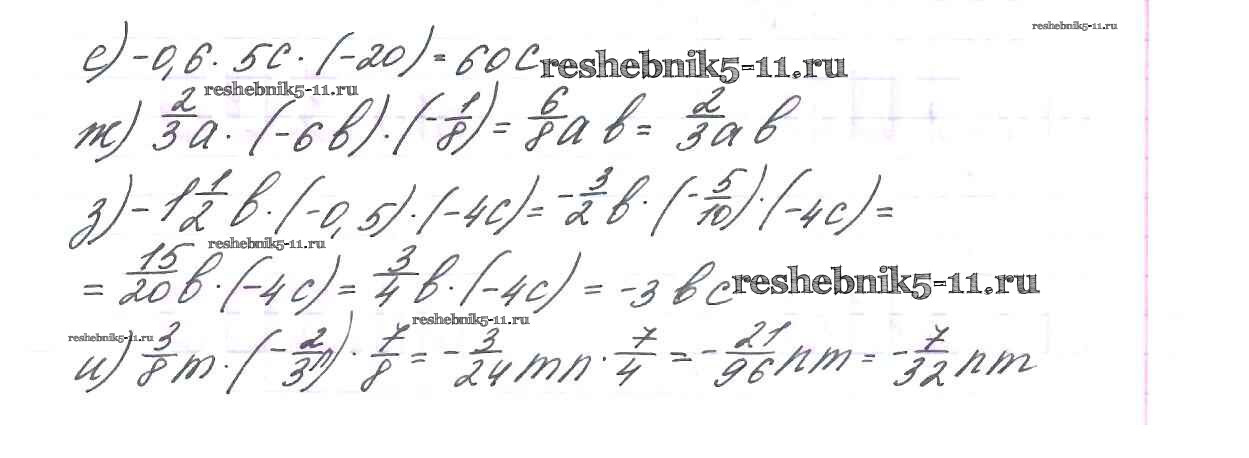 reshebnik5-11.ru
е) -0,6 · 5c · (-20) = 60c
reshebnik5-11.ru
reshebnik5-11.ru
ж) 2/3 a · (-6b) · (-1/8) = 6/8 a b = 2/3 a b
з) -1 1/2 b · (-0,5) · (-4c) = -3/2 b · (-5/10) · (-4c) =
reshebnik5-11.ru
= 15/20 b · (-4c) = 3/4 b · (-4c) = -3 b c
reshebnik5-11.ru
reshebnik5-11.ru
reshebnik5-11.ru
и) 3/8 m · (-2/3 n) · 7/8 = -3/24 mn · 7/4 = -21/96 nm = -7/32 nm